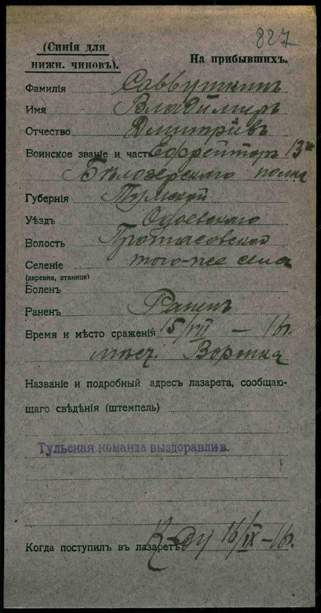 827
(Синія для
нижн. чиновъ).
На прибывшихъ.
Фамилія Саввушкинъ
Имя Владимиръ
Отчество Дмитріевъ
Воинское званіе и часть Ефрейторъ 13й
Бѣлозерскаго полка
Губернія Тульской
Уѣздъ Одоевскаго
Волость Протасовской
Селеніе того-же села
(деревня, станица)
Боленъ
Раненъ Раненъ
Время и мѣсто сраженія 15/VII – 16г.
мѣст.
Названіе и подробный адресъ лазарета, сообщаю-
щаго свѣдѣнія (штемпель)
Тульская команда выздоравлив.
Когда поступилъ въ лазаретъ 16/IX – 16г.